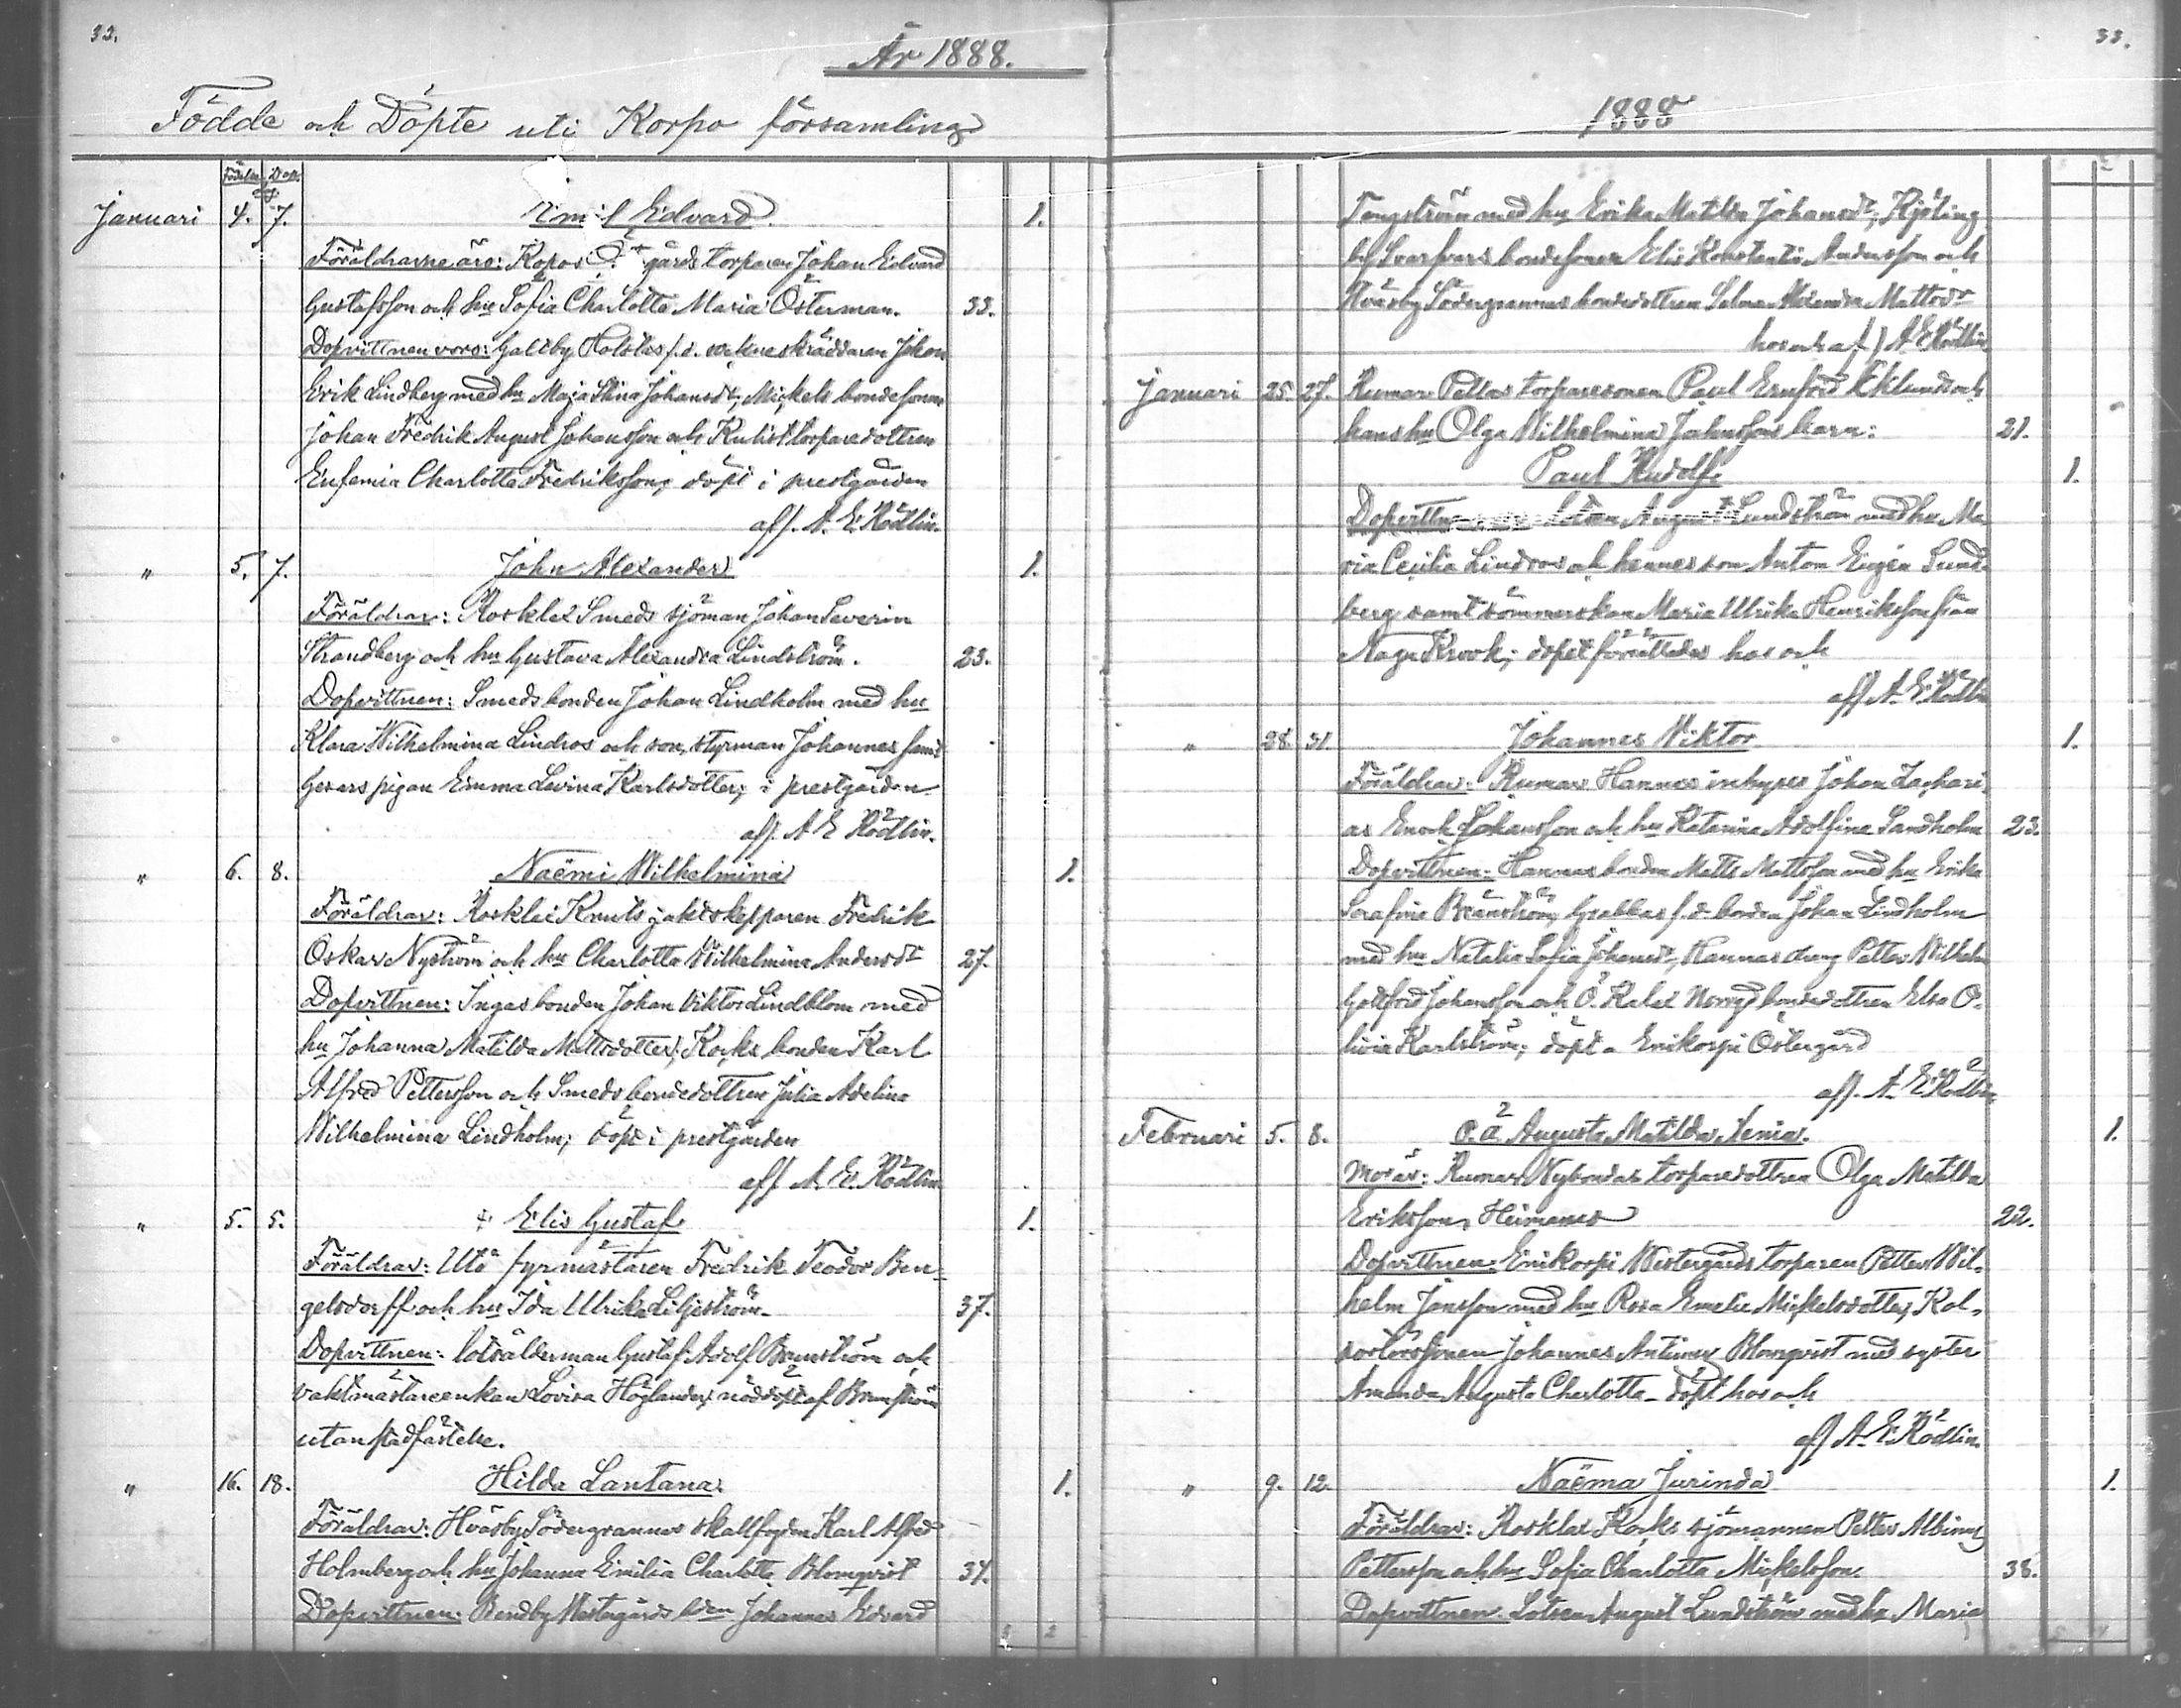 32.
År 1888.
Födde och Döpte uti Korpo församling
Födelse Dop
dag
Januari 4. 7. Emil Edvard. 1.
Föräldrarne äro: Korpo gårds torparen Johan Edvard
Gustafsson och hu Sofia Charlotta Maria Österman. 33.
Dopvittnen voro: Galtby Holstis f.d. sockneskräddaren Johan
Erik Lindberg med hu Maja Stina Johansdr, Mickels bondesonen
Johan Fredrik August Johansson och torparedottren
Eufemia Charlotta Fredriksson; döpt i prestgården
aff. A. E. Rödlin.
" 5. 7. John Alexander 1.
Föräldrar: Rosklax Smeds sjöman Johan Severin
Strandberg och hu Gustava Alexandra Lindström. 23.
Dopvittnen: Smeds bonden Johan Lindholm med hu
Klara Wilhelmina Lindros och son, styrman Johannes samt
pigan Emma Levina Karlsdotter; i prestgården
aff. A E Rödlin.
" 6. 8. Naëmi Wilhelmina 1.
Föräldrar: Rosklax Knuts jaktskepparen Fredrik
Oskar Nyström och hu Charlotta Wilhelmina Andersdr 27.
Dopvittnen: Ingas bonden Johan Viktor Lindblom med
hu Johanna Matilda Mattsdotter; Kocks bonden Karl
Alfred Pettersson och Smeds bondedottren Julia Adelina
Wilhelmina Lindholm; döpt i prestgården
aff A. E. Rödlin
" 5. 5. + Elis Gustaf 1.
Föräldrar: Utö fyrmästaren Fredrik Teodor Ben-
gelsdorff och hu Ida Ulrika Liljeström. 37.
Dopvittnen: lotsålderman Gustaf Adolf Brunström och
vaktmästareenkan Lovisa Höglander; nöddöpt af Brunström
utan stadfästelse.
" 16. 18. Hilda Lantana. 1.
Föräldrar: Hväsby Södergrannas skallfogden Karl Alfred
Holmberg och hu Johanna Emilia Charlotta Blomqvist 37.
Dopvittnen: Westergårds Johannes Edvard
33.
1888
med hu Erika Matilda Johansdr;
bondesonen Elis Konstantin Andersson och
Hväsby Södergrannas bondedottren Selma Alexandra Mattsdr
hos och af A E Rödlin
Januari 25. 27. Rumar Pellas torparesonen Paul Ernfrid Eklund och
hans hu Olga Wilhelmina Johnssons barn: 21.
Paul Rudolf. 1.
lotsen August Lundström med hu Ma-
ria Cecilia Lindros och hennes son Anton Eugén Sund-
berg samt sömmerskan Maria Ulrika Henriksson från
Nagu Krook; dopet förrättades hos och
aff A. E. Rödlin
" 28. 31. Johannes Viktor 1.
Föräldrar: Rumar Hannas inhyses Johan Zachari-
as Enoch Johansson och hu Katarina Adolfina Sandholm 23.
Dopvittnen: Hannas bonden Matts Mattsson med hu Erika
Serafina Brunström; Grabbas f.d. bonden Johan Lindholm
med hu Natalia Sofia Johansdr, Hannas dreng Petter Wilhelm
Gottfrid Johansson och Norrgårds bondedottren Elsa O-
livia Karlström; döpt å Enikorpi Östergård
aff. A. E. Rödlin
Februari 5. 8. O.Ä. Augusta Matilda Xenia. 1.
Mor är: Rumar Nybondas torparedottren Olga Matilda
Eriksson, 22.
Dopvittnen: Enikorpi Westergårds torparen Petter Wil-
helm Jansson med hu Rosa Emelie Mickelsdotter; Kal-
Johannes Blomqvist med syster
Amanda Augusta Charlotta. Döpt hos och
aff A. E. Rödlin
" 9. 12. Naëma Jurinda 1.
Föräldrar: Rosklax Kocks sjömannen Petter Albinus
Pettersson och hu Sofia Charlotta Mickelsson. 38.
Dopvittnen: Lotsen August Lundström med hu Maria